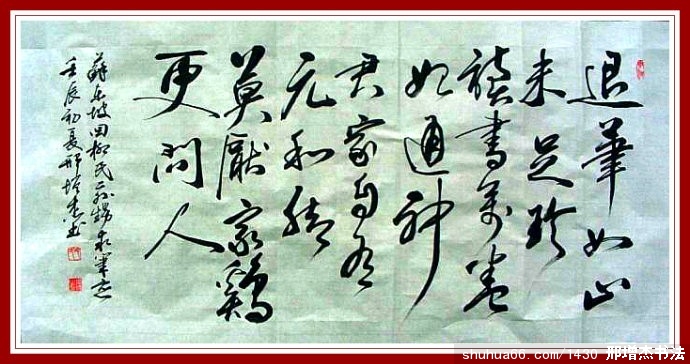 退筆如山
未足珍
讀書萬卷
始通神
君家自有
元和脚
莫厭家鷄
更問人
蘇東坡回柳氏二外甥求筆迹
壬辰初夏邢增杰书
邢增杰书法